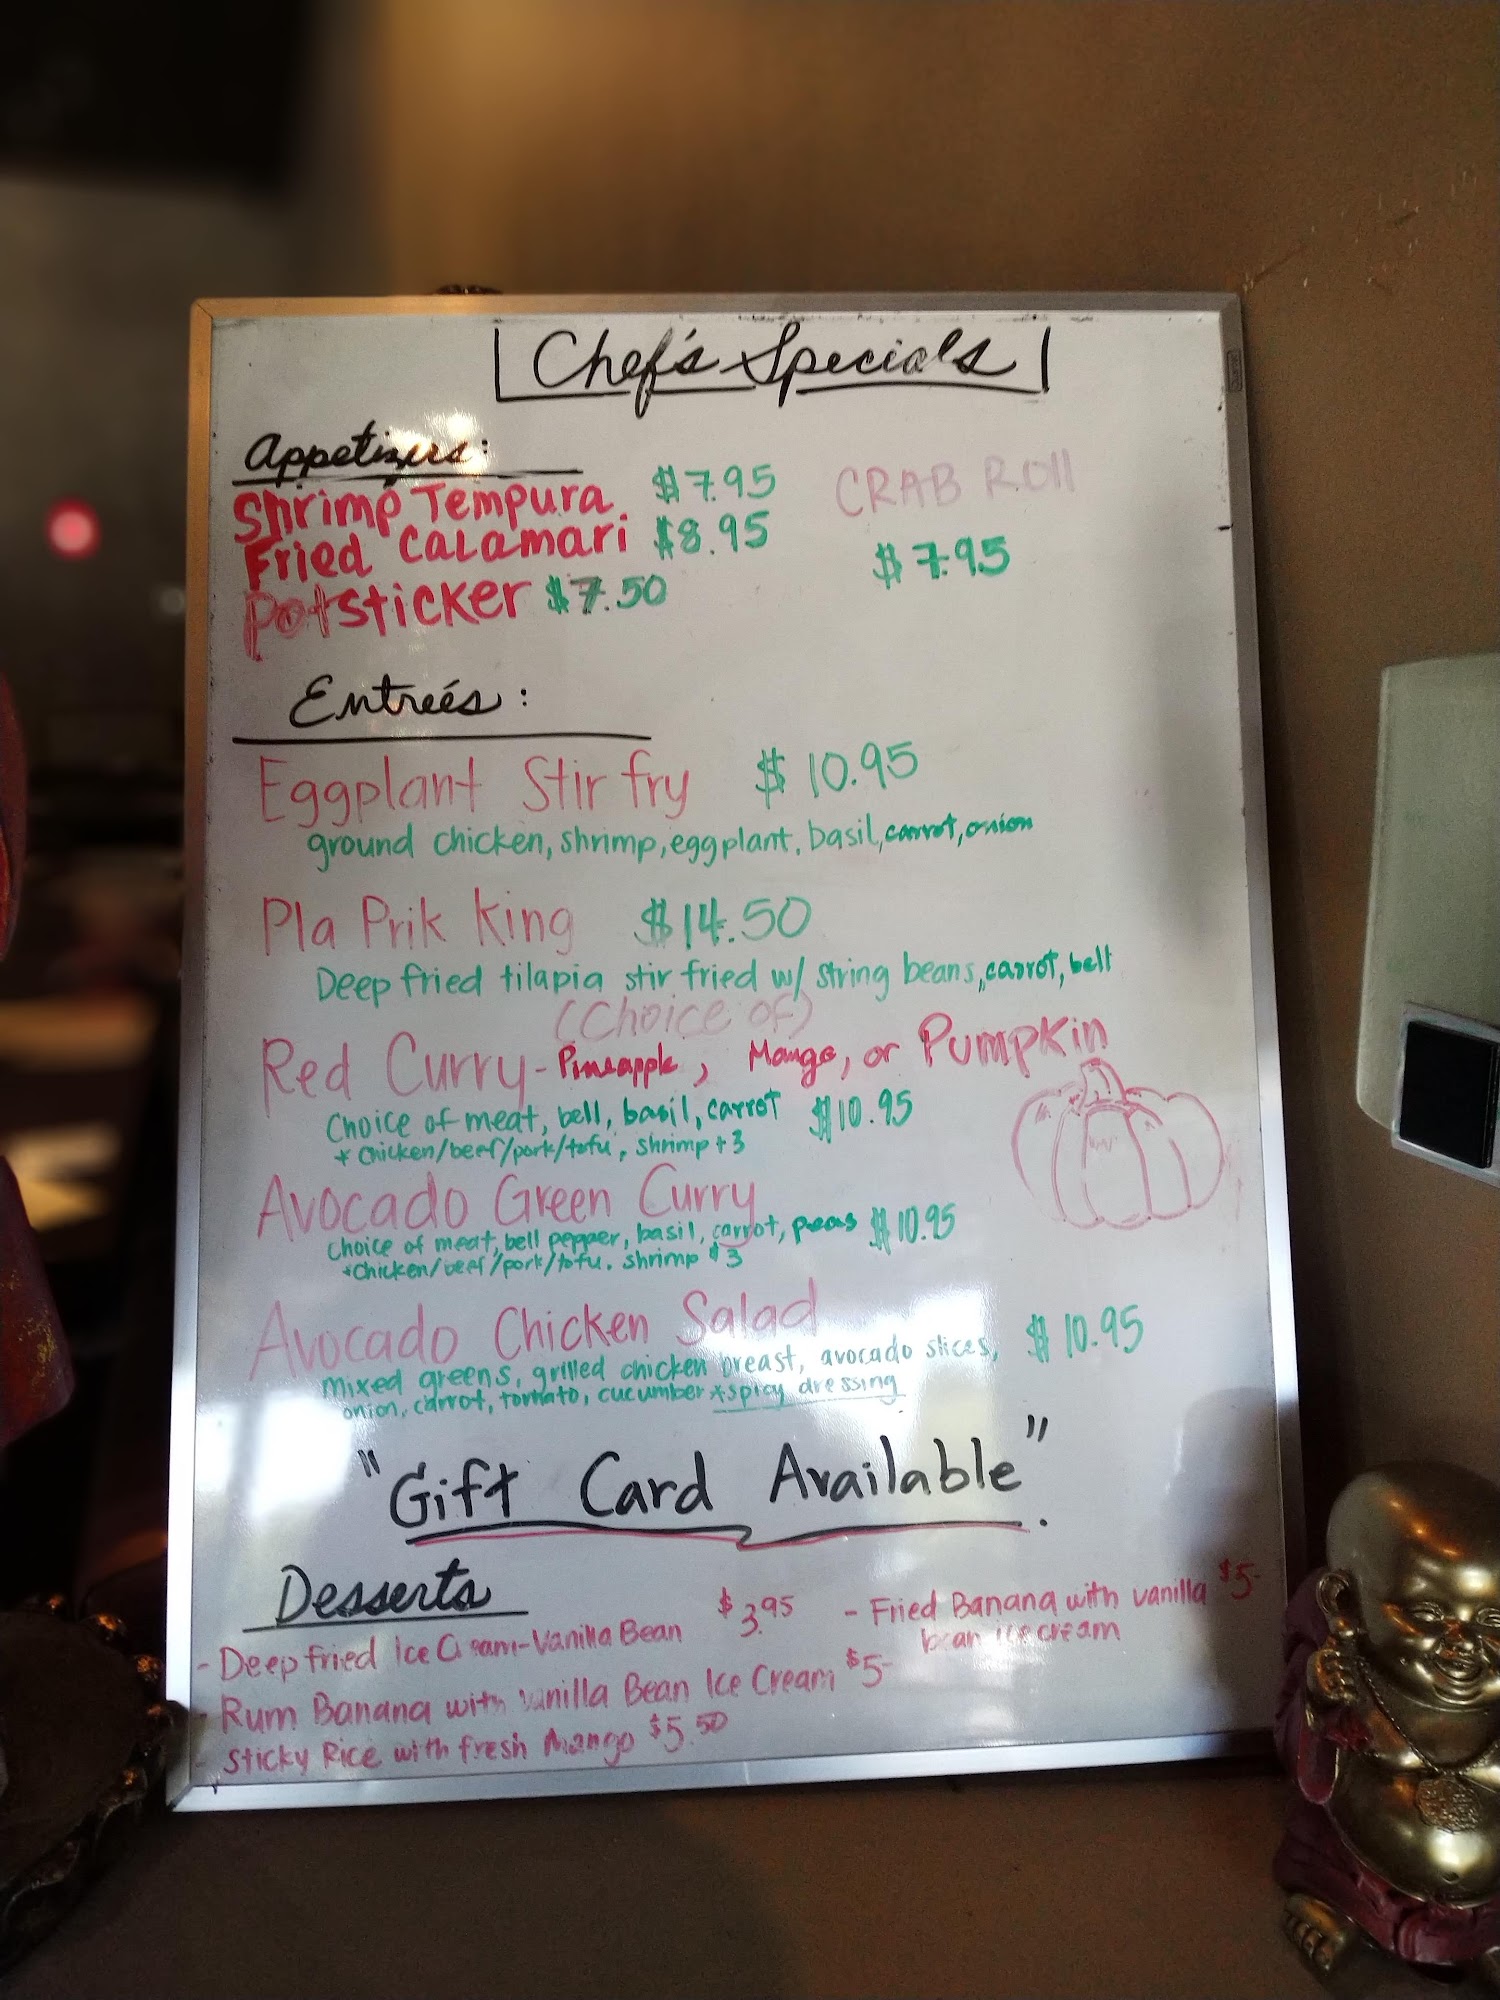 Chef's Specials
Appetizers:
Shrimp Tempura $7.95
Fried Calamari $8.95
Potsticker $7.50
CRAB Roll
$7.95
Entreés:
Eggplant Stir fry $10.95
ground chicken, shrimp, eggplant, basil, carrot, onion
Pla Prik King $14.50
Deep fried tilapia stir fried w/ string beans, carrot, bell
(Choice of)
Red Curry - Pineapple, Mango, or Pumpkin
Choice of meat, bell, basil, carrot $10.95
* chicken/beef/pork/tofu, shrimp + 3
Avocado Green Curry
choice of meat, bell pepper, basil, carrot, peas $10.95
*chicken/beef/pork/tofu. shrimp $3
Avocado Chicken Salad $10.95
mixed greens, grilled chicken breast, avocado slices,
onion, carrot, tomato, cucumber *spicy dressing
"Gift Card Available".
Desserts
- Deep fried Ice Cream-Vanilla Bean $3.95
- Rum Banana with vanilla Bean Ice Cream $5-
- Sticky Rice with fresh Mango $5.50
- Fried Banana with vanilla $5-
bean ice cream